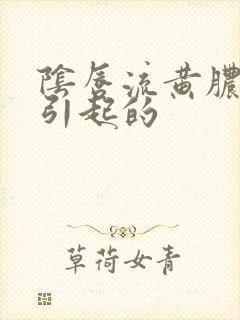 陰唇流黄膿
引起的
草荷女青